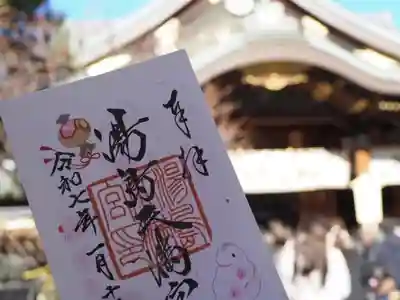 奉拝
湯島天満宮
令和七年一月十